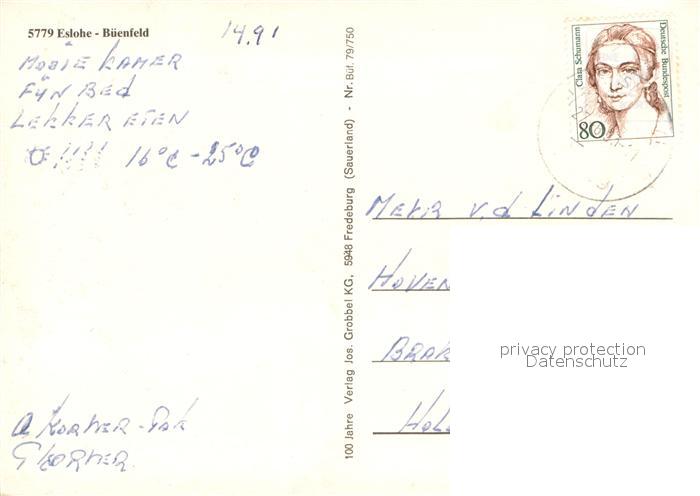 5779 Eslohe - Büenfeld
14.91
MOOIE KAMER
FYN BED
LEKKER ETEN
16°C - 25°C
A KORVER - PAK
KORVER
100 Jahre Verlag Jos. Grobbel KG, 5948 Fredeburg (Sauerland) - Nr. Büf. 79/750
Clara Schumann
Deutsche Bundespost
80
MEVR V.D LINDEN
HOVEN
BRAK
HOL
privacy protection
Datenschutz